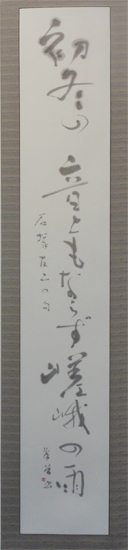 初冬の
音ともならず嵯峨の雨